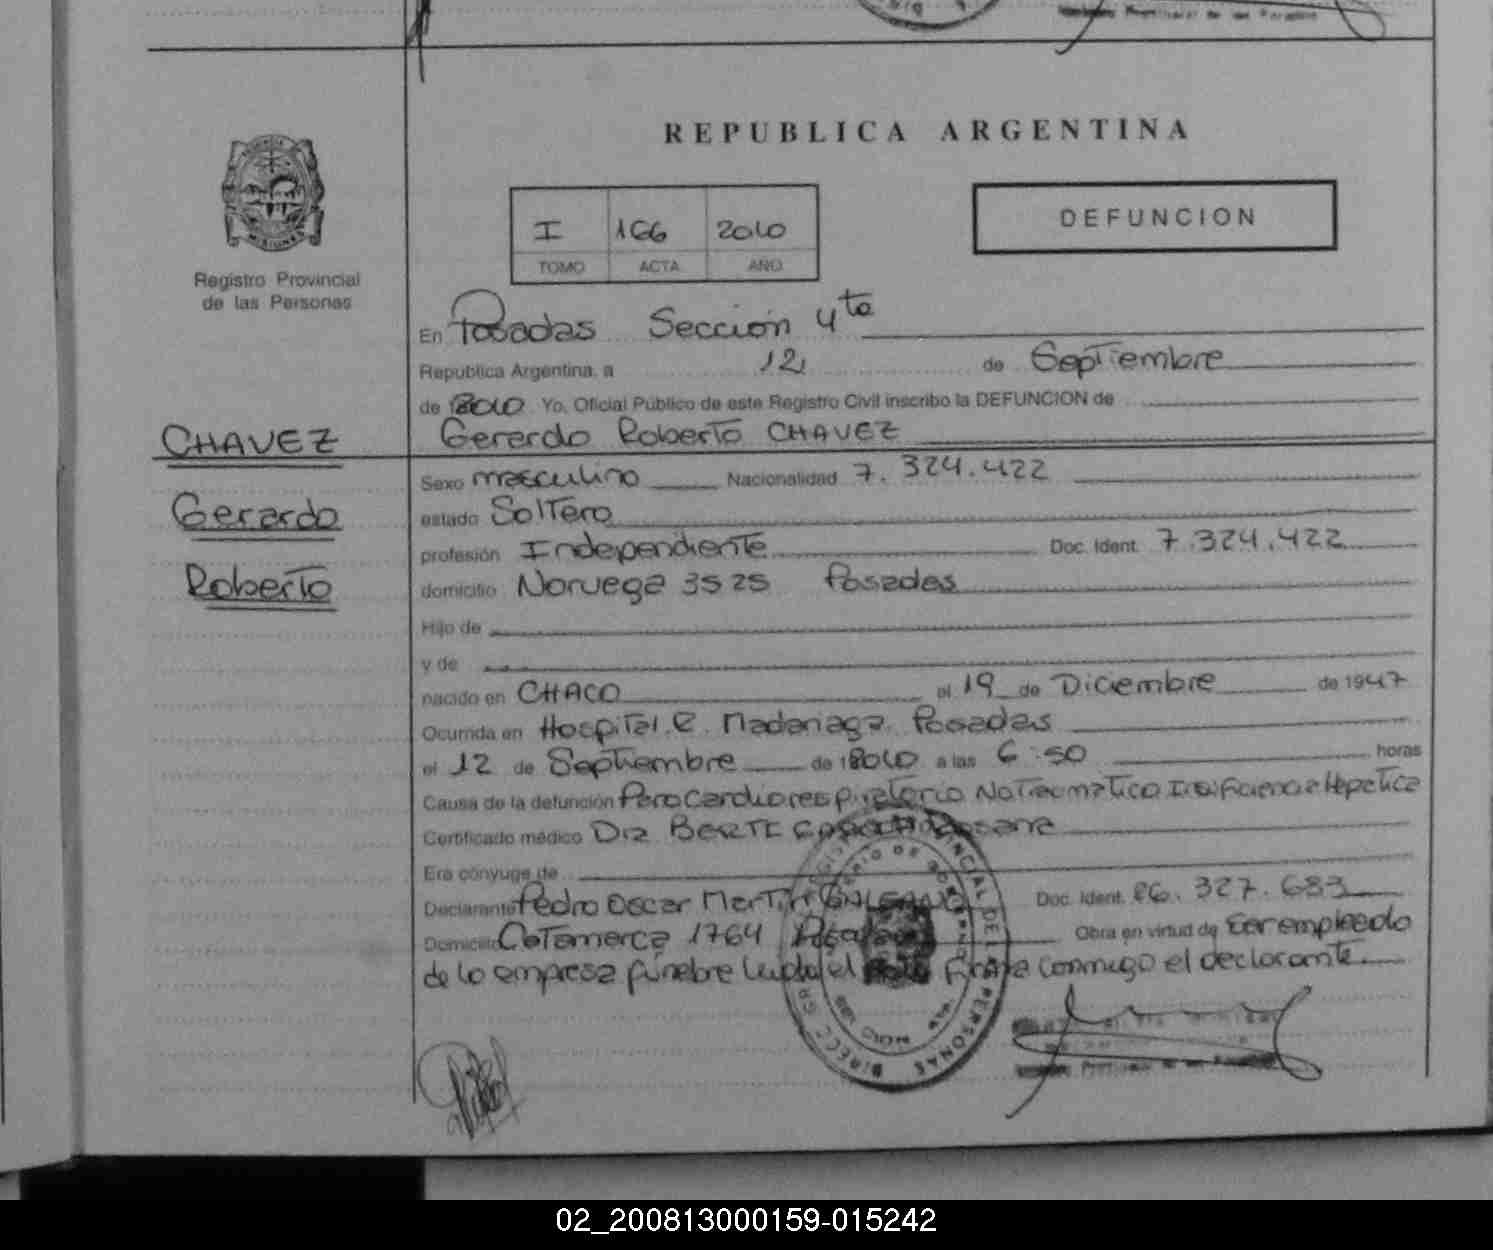 REPUBLICA ARGENTINA
I 166 2010
TOMO ACTA AÑO
DEFUNCION
Registro Provincial
de las Personas
CHAVEZ
Gerardo
Roberto
En Posadas Sección 4ta
Republica Argentina, a 12 de Septiembre
de 2010 Yo, Oficial Público de este Registro Civil inscribo la DEFUNCION de
Gererdo Roberto CHAVEZ
Sexo masculino Nacionalidad 7.324.422
estado Soltero
profesión Independiente Doc. Ident. 7.324.422
domicilio Noruega 3525 Posadas
Hijo de
y de
nacido en CHACO el 19 de Diciembre de 1947
Ocurrida en Hospital R. Madariaga Posadas
el 12 de Septiembre de 2010 a las 6:50 horas
Causa de la defunción Paro Cardiorespiratorio No Traumatico Insificiencia Hepatica
Certificado médico Dra BERTE
Era cónyuge de
Declarante Pedro Oscar Martin GALEANO Doc. Ident. 26.327.683
Domicilio Catamarca 1764 Posadas Obra en virtud de ser empleado
de la empresa fúnebre Leida el Acta firma conmigo el declarante
02_200813000159-015242